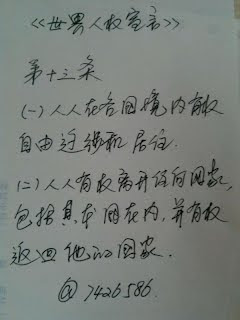 《世界人权宣言》
第十三条
(一)人人在各国境内有权
自由迁徙和居住.
(二)人人有权离开任何国家,
包括其本国在内,并有权
返回他的国家.
@7426586.